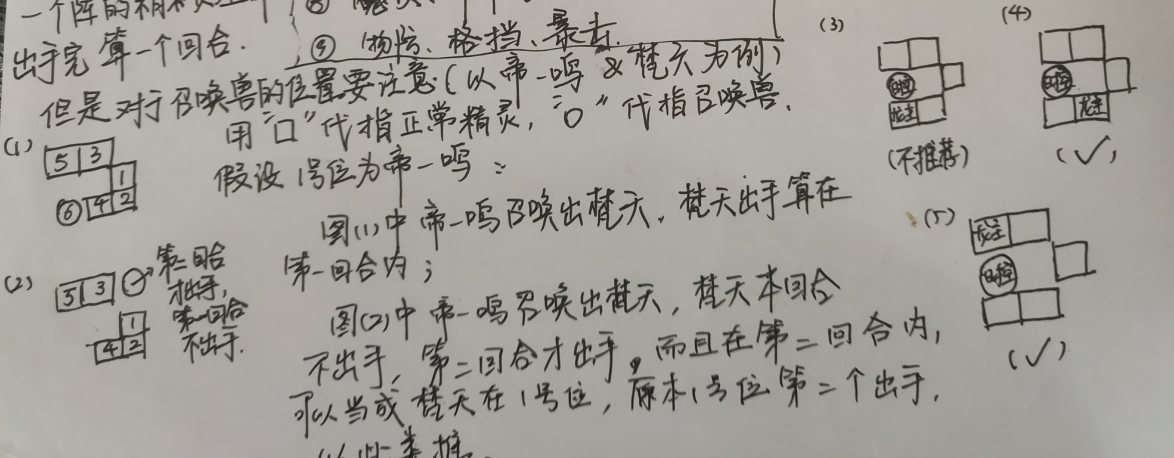 一个阵的精灵
出手完算一个回合.
⑤ 物防、格挡、暴击.
但是对于召唤兽的位置要注意(以帝一鸣&梵天为例)
用"口"代指正常精灵,"○"代指召唤兽.
假设1号位为帝一鸣:
(1)
5 3
1
⑥ 4 2
图(1)中帝一鸣召唤出梵天,梵天出手算在
第一回合内;
(2)
5 3
1
4 2
第二回合
才出手,
第一回合
不出手.
图(2)中帝一鸣召唤出梵天,梵天本回合
不出手,第二回合才出手,而且在第二回合内,
可以当成梵天在1号位,原本1号位第二个出手,
以此类推.
(3)
龙主
(不推荐)
(4)
龙主
(✓)
(5)
龙主
(✓)